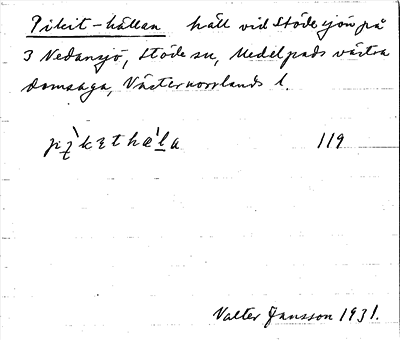 Pikit-hällan häll vid Stödesjön på
3 Nedansjö, Stöde sn, Medelpads västra
domsaga, Västernorrlands l.
pı̀kethæ̀la 119
Valter Jansson 1931.